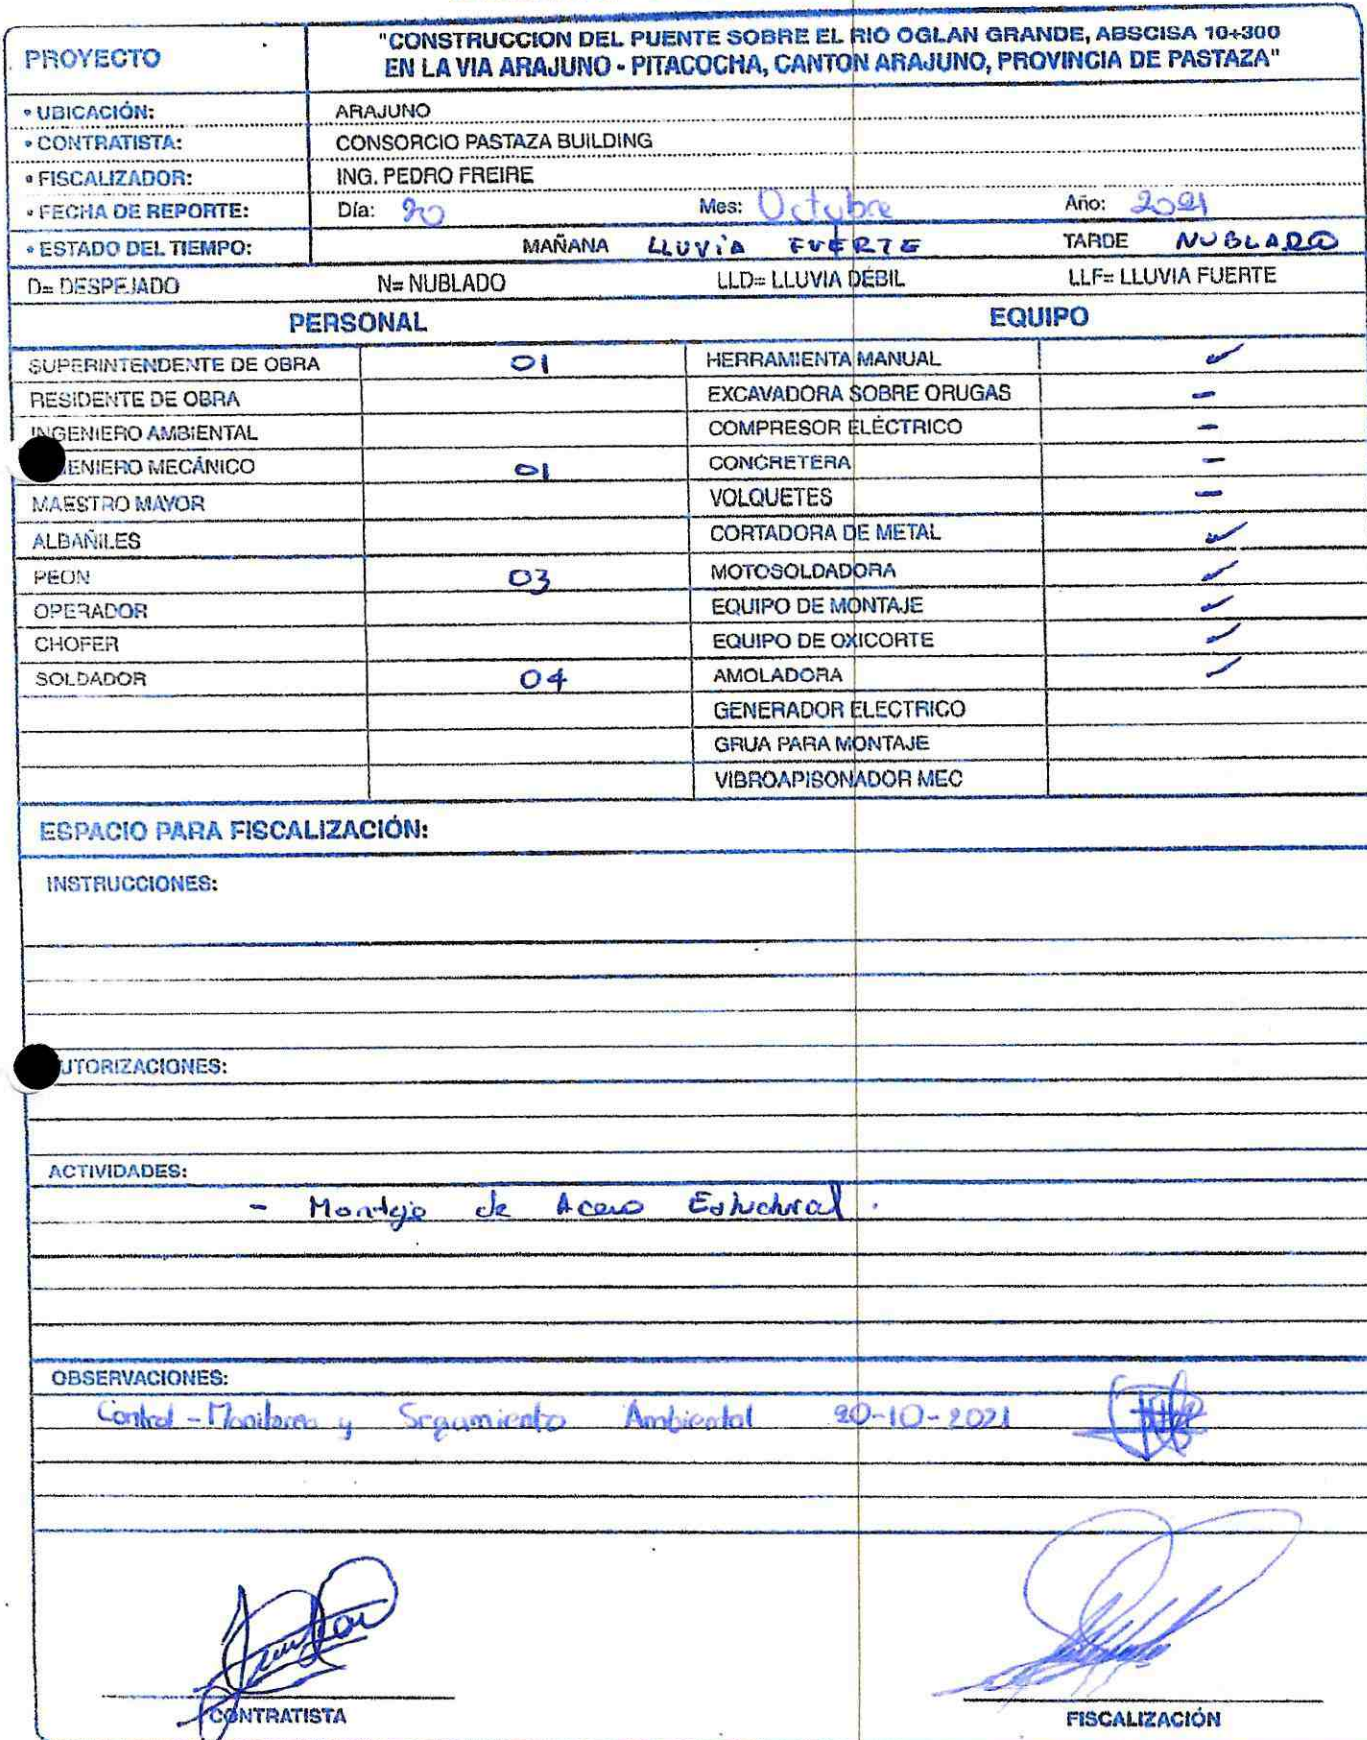 PROYECTO
"CONSTRUCCION DEL PUENTE SOBRE EL RIO OGLAN GRANDE, ABSCISA 10+300
EN LA VIA ARAJUNO - PITACOCHA, CANTON ARAJUNO, PROVINCIA DE PASTAZA"
• UBICACIÓN: ARAJUNO
• CONTRATISTA: CONSORCIO PASTAZA BUILDING
• FISCALIZADOR: ING. PEDRO FREIRE
• FECHA DE REPORTE: Día: 20 Mes: Octubre Año: 2021
• ESTADO DEL TIEMPO: MAÑANA LLUVIA FUERTE TARDE NUBLADO
D= DESPEJADO N= NUBLADO LLD= LLUVIA DÉBIL LLF= LLUVIA FUERTE
PERSONAL EQUIPO
SUPERINTENDENTE DE OBRA 01 HERRAMIENTA MANUAL ✓
RESIDENTE DE OBRA EXCAVADORA SOBRE ORUGAS -
INGENIERO AMBIENTAL COMPRESOR ELÉCTRICO -
ENIERO MECÁNICO 01 CONCRETERA -
MAESTRO MAYOR VOLQUETES -
ALBAÑILES CORTADORA DE METAL ✓
PEON 03 MOTOSOLDADORA ✓
OPERADOR EQUIPO DE MONTAJE ✓
CHOFER EQUIPO DE OXICORTE ✓
SOLDADOR 04 AMOLADORA ✓
GENERADOR ELECTRICO
GRUA PARA MONTAJE
VIBROAPISONADOR MEC
ESPACIO PARA FISCALIZACIÓN:
INSTRUCCIONES:
UTORIZACIONES:
ACTIVIDADES:
- Montaje de Acero Estuctural.
OBSERVACIONES:
Control - Monitoreo y Seguimiento Ambiental 20-10-2021
CONTRATISTA FISCALIZACIÓN